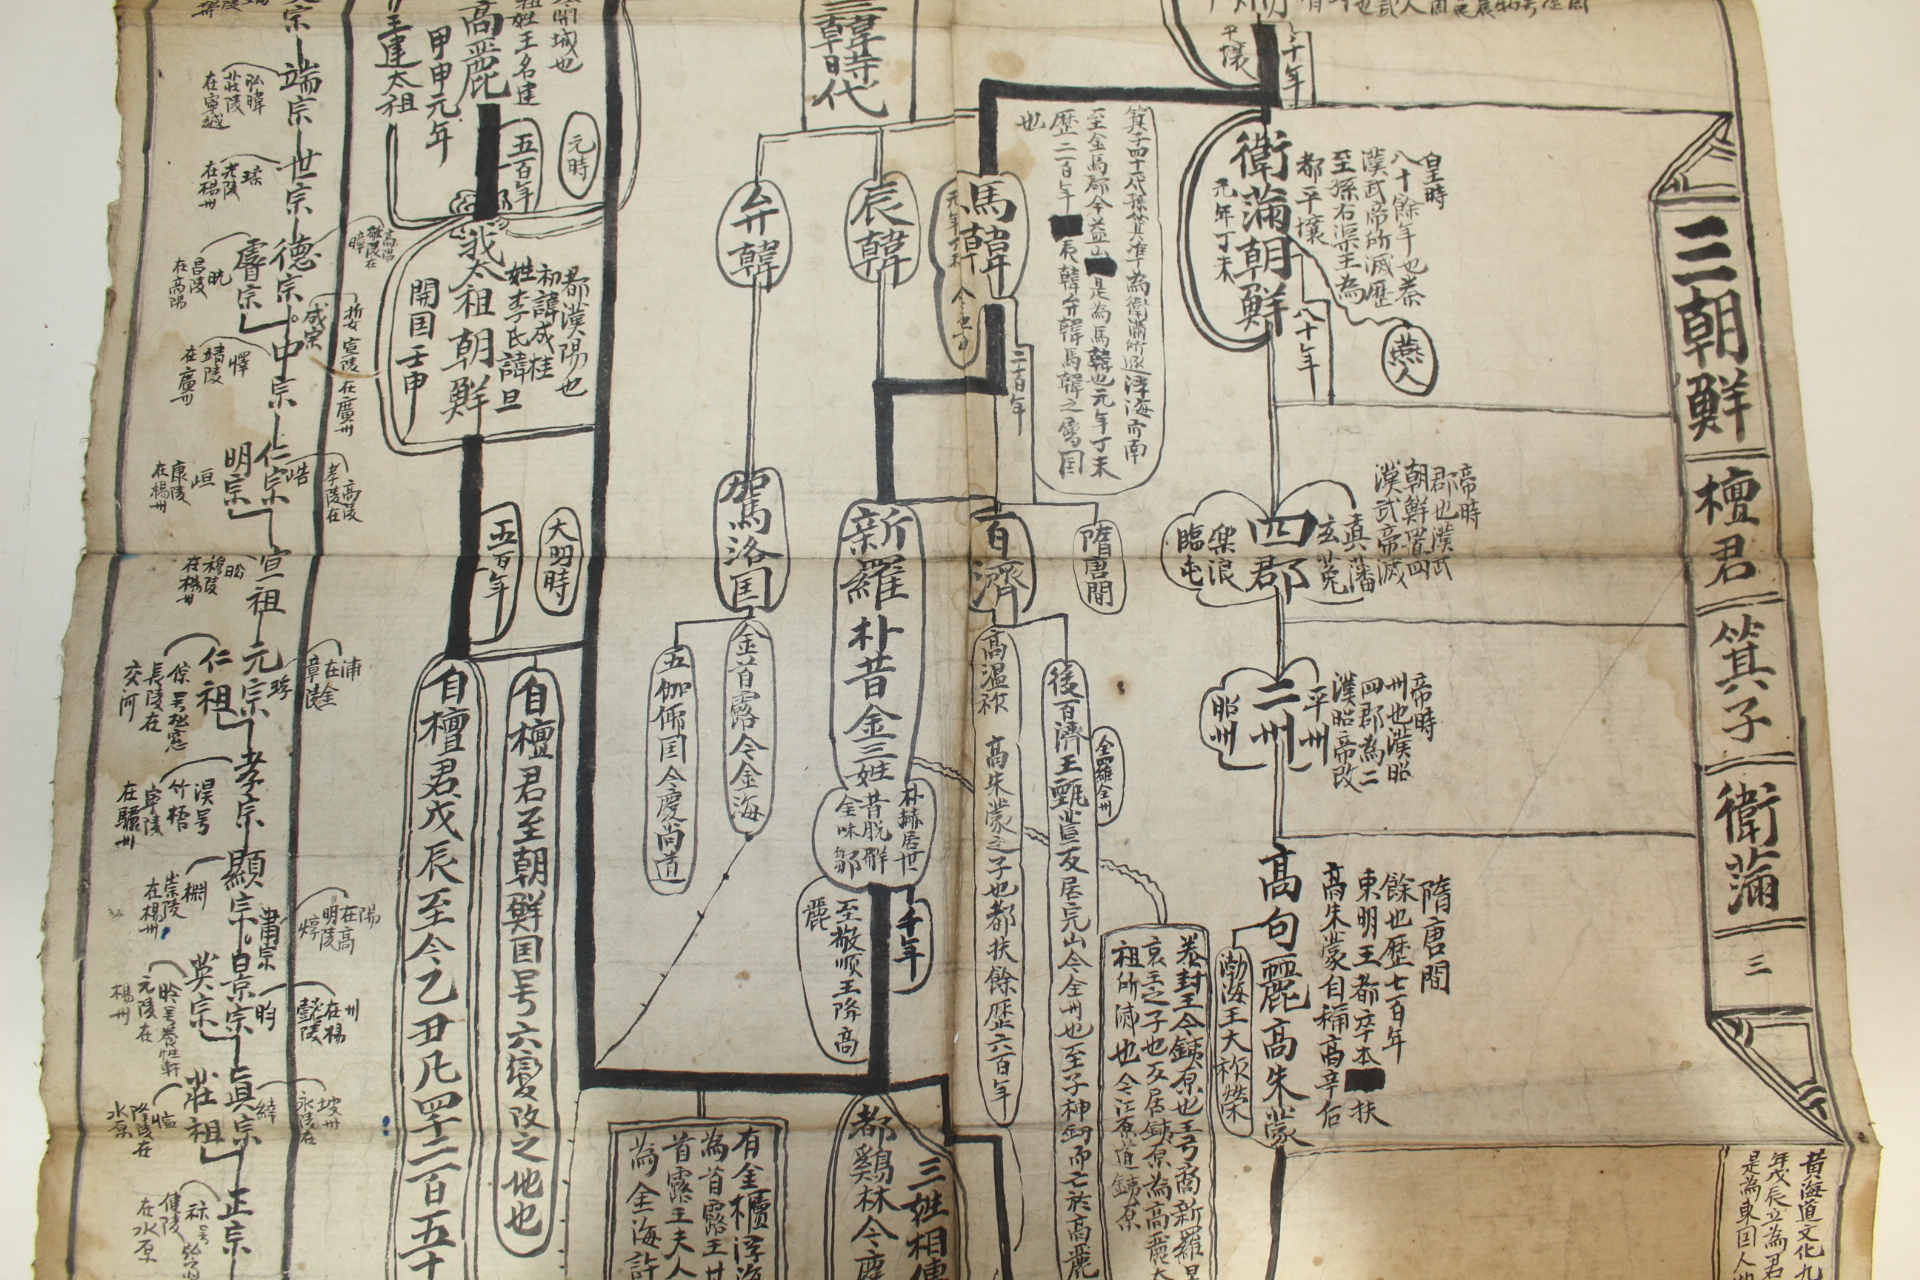 三朝鮮
檀君
箕子
衛蒲
三
黃海道文化九
年戊辰立為君
是為東国人
平壤
三十年
衛蒲朝鮮
元年丁未
都平壤
至孫右渠王為
漢武帝所滅歷
八十餘年也秦
皇時
燕人
八十年
四郡
真藩
玄菟
樂浪
臨屯
帝時
郡也漢武
朝鮮置四
漢武帝滅
二州
平州
昭州
帝時
州也漢昭
四郡為二
漢昭帝改
高句麗高朱蒙
隋唐間
餘也歷七百年
東明王都卒本扶
高朱蒙自稱高辛后
渤海王大祚榮
箕子四十一代孫箕準為衛滿所逐浮海而南
至金馬郡今益山是為馬韓也元年丁未
歷二百年辰韓弁韓馬韓之屬国
也
三韓時代
馬韓
辰韓
弁韓
二百年
隋唐間
百濟
高溫祚 高朱蒙之子也都扶餘歷六百年
後百濟王甄萱反居完山今全州也至子神劍而亡於高麗
全羅全州
新羅朴昔金三姓
朴赫居世
昔脫解
金味鄒
千年
至敬順王降高
麗
駕洛国
金首露今金海
五伽倻国今慶尚道
都鷄林今慶
三姓相傳
有金櫃浮海
為首露王
首露王夫人
為金海許
高麗
甲申元年
王建太祖
姓王名建
開城也
元時
五百年
我太祖朝鮮
開国壬申
都漢陽也
初諱成桂
姓李氏諱旦
大明時
五百年
自檀君至朝鮮国号六變改之地也
自檀君戊辰至今乙丑凡四千二百五十
端宗
弘暐
莊陵
在寧越
世宗
瑈
光陵
在楊州
德宗
暲
敬陵在
高陽
睿宗
晄
昌陵
在高陽
成宗
娎
宣陵
在廣州
中宗
懌
靖陵
在廣州
仁宗
峼
孝陵在
高陵
明宗
峘
康陵
在楊州
宣祖
昖
穆陵
在楊州
元宗
琈
章陵
在金
浦
仁祖
倧号松窓
長陵在
交河
孝宗
淏号
竹梧
寧陵
在驪州
顯宗
棩
崇陵
在楊州
肅宗
焞
明陵
在高
陽
景宗
昀
懿陵
在楊
州
英宗
昑号養性軒
元陵在
楊州
真宗
緈
永陵在
坡州
莊祖
愃
隆陵在
水原
正宗
祘号弘
健陵
在水原